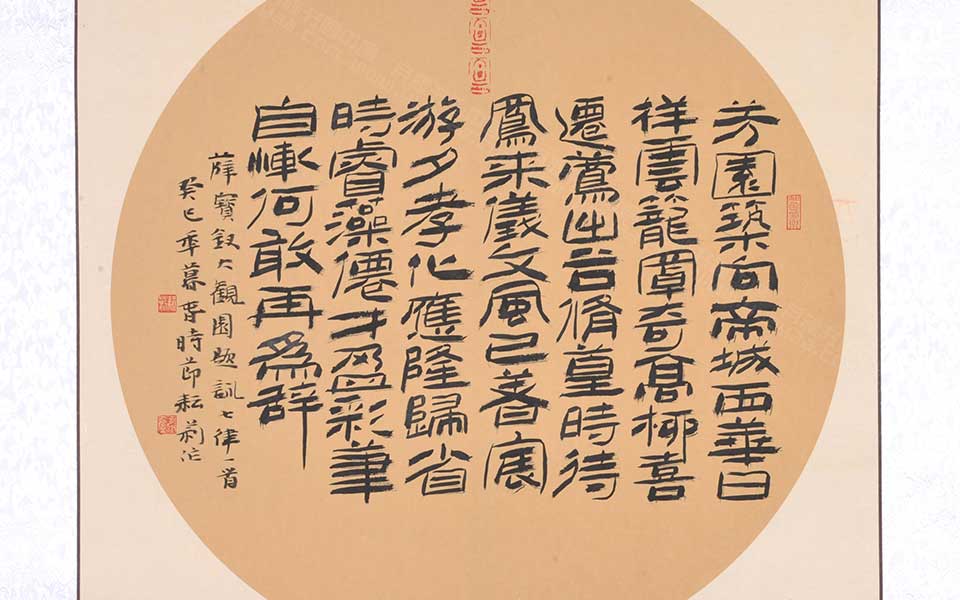 芳園築向帝城西華日
祥雲籠罩奇高柳喜
遷鶯出谷脩篁時待
鳳来儀文風已著宸
游夕孝化應隆歸省
時睿藻僊才盈彩筆
自慚何敢再為辭
薛寶釵大觀園題詠七律一首
癸巳秊暮春時節耘